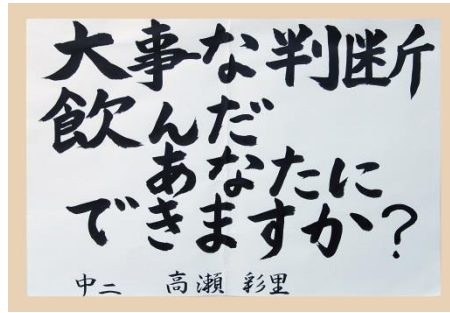 大事な判断
飲んだ
あなたに
できますか？
中二 高瀬 彩里